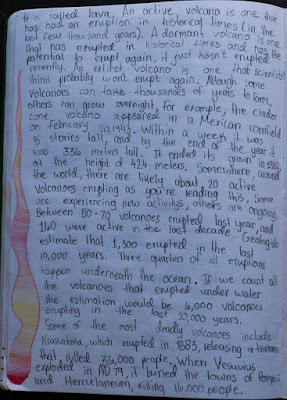 it is called lava. An active volcano is one that
has had an eruption in historical times (in the
last few thousand years). A dormant volcano is one
that has erupted in historical times and has the
potential to erupt again, it just hasn't erupted
recently. An extinct volcano is one that scientists
think probably won't erupt again. Altough some
volcanoes can take thousands of years to form,
others can grow overnight, for example, the cinder
cone volcano appeared in a Mexican cornfield
on February 20,1943. Within a week it was
5 stories tall, and by the end of the year it
was 336 meters tall. It ended its grown in 1952,
at the height of 424 meters. Somewhere around
the world, there are likely about 20 active
volcanoes erupting as you're reading this. Some
are experiencing new activitys, others are ongoing.
Between 50-70 volcanoes erupted last year, and
160 were active in the last decade. Geologists
estimate that 1,300 erupted in the last
10,000 years. Three quarters of all eruptions
happen underneath the ocean. If we count all
the volcanoes that erupted under water
the estimation would be 6,000 volcanoes
erupting in the last 10,000 years.
Some of the most deadly volcanoes include
Krakatoa, which erupted in 1883, releasing a tsunami
that killed 36,000 people. When Vesuvius
exploded in AD 79, it buried the towns of Pompeii
and Herculaneum, killing 16,000 people.